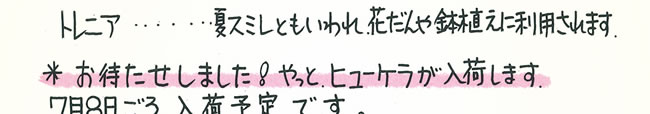 トレニア・・・・・・夏スミレともいわれ、花だんや鉢植えに利用されます.
* お待たせしました! やっと、ヒューケラが入荷します.
7月8日ごろ 入荷予定 です。